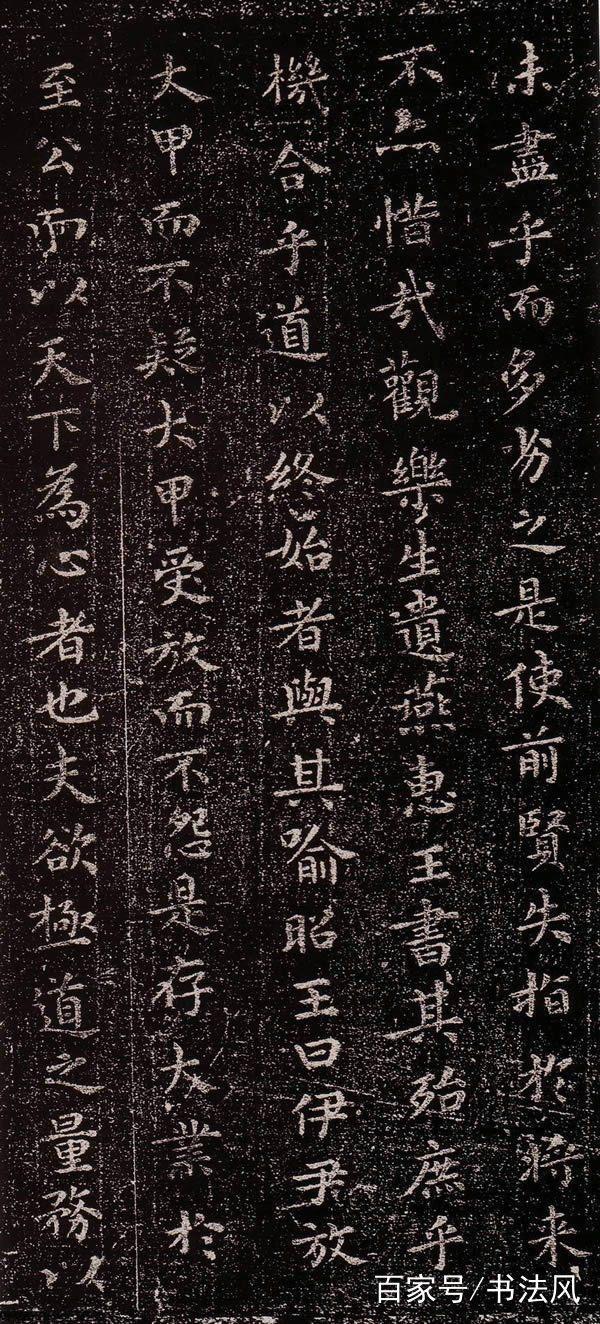 未盡乎而多劣之是使前賢失指於將来
不亦惜哉觀樂生遺燕惠王書其殆庶乎
機合乎道以終始者與其喻昭王曰伊尹放
大甲而不疑大甲受放而不怨是存大業於
至公而以天下為心者也夫欲極道之量務以
百家号/书法风